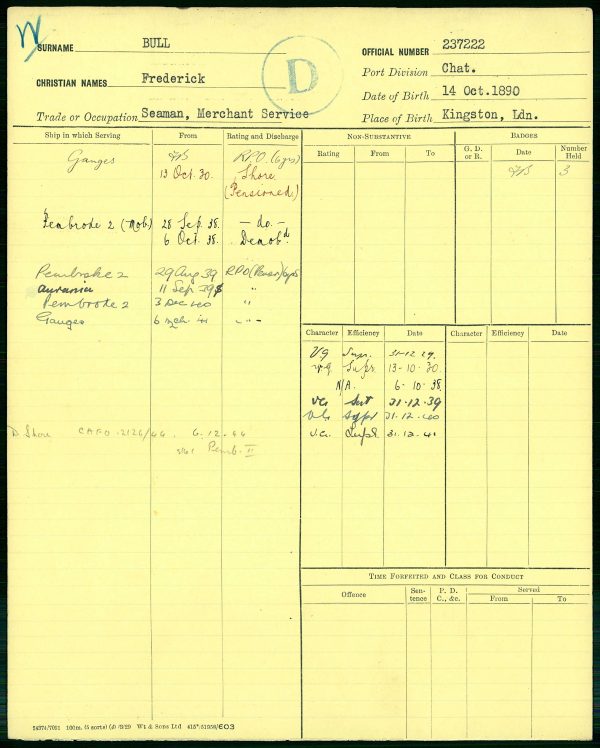 W
SURNAME BULL
OFFICIAL NUMBER 237222
CHRISTIAN NAMES Frederick
D
Port Division Chat.
Date of Birth 14 Oct.1890
Trade or Occupation Seaman, Merchant Service
Place of Birth Kingston, Ldn.
Ship in which Serving From Rating and Discharge
NON-SUBSTANTIVE
Rating From To
BADGES
G. D. or R. Date Number Held
Ganges RPO.
13 Oct. 30. Shore
(Pensioned)
3
Pembroke 2 (Mob.) 28 Sep. 38. — do. —
6 Oct. 38. Demobd.
Pembroke 2 29 Aug 39 RPO (Pens)
Aurania 11 Sep 39 "
Pembroke 2 3 Dec 40 "
Ganges 6 mch 41 "
Character Efficiency Date Character Efficiency Date
VG Supr. 31-12-29.
VG Supr 13-10-30.
N/A. 6-10-38.
VG Sat 31-12-39
VG 31-12-40
V.G. 31-12-41
D. Shore CAFO 2126/44. 6.12.44
Pemb. II
TIME FORFEITED AND CLASS FOR CONDUCT
Offence Sentence P. D. C., &c. Served
From To
100m. (5 sorts) Wt & Sons Ltd 603